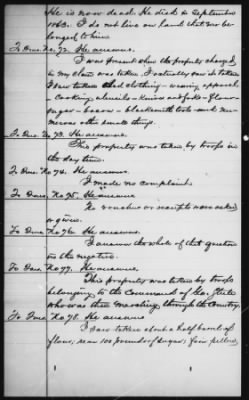 He is now dead. He died in September
1863. I do not live on land that now be-
longed to him.
To Ques. No. 72. He answers.
I was present when the property charged
in my claim was taken. I actually saw it taken
I saw taken clothing - wearing apparel
- Cooking utensils - Knives and forks - flour -
sugar - bacon & blacksmith tools and nu-
merous other small things.
To Ques. No. 73. He answers.
This property was taken by troops in
the day time.
To Ques. No. 74. He answers.
I made no complaint.
To Ques. No. 75. He answers
No voucher or receipts were asked
or given.
To Ques. No. 76. He answers.
I answer the whole of that question
in the negative.
To Ques. No. 77. He answers.
This property was taken by troops
belonging to the Commands of Gen.
who was then marching through the Country.
To Ques. No. 78. He answers
I saw taken about a half barrel of
flour, near 100 pounds of sugar; four pillows,